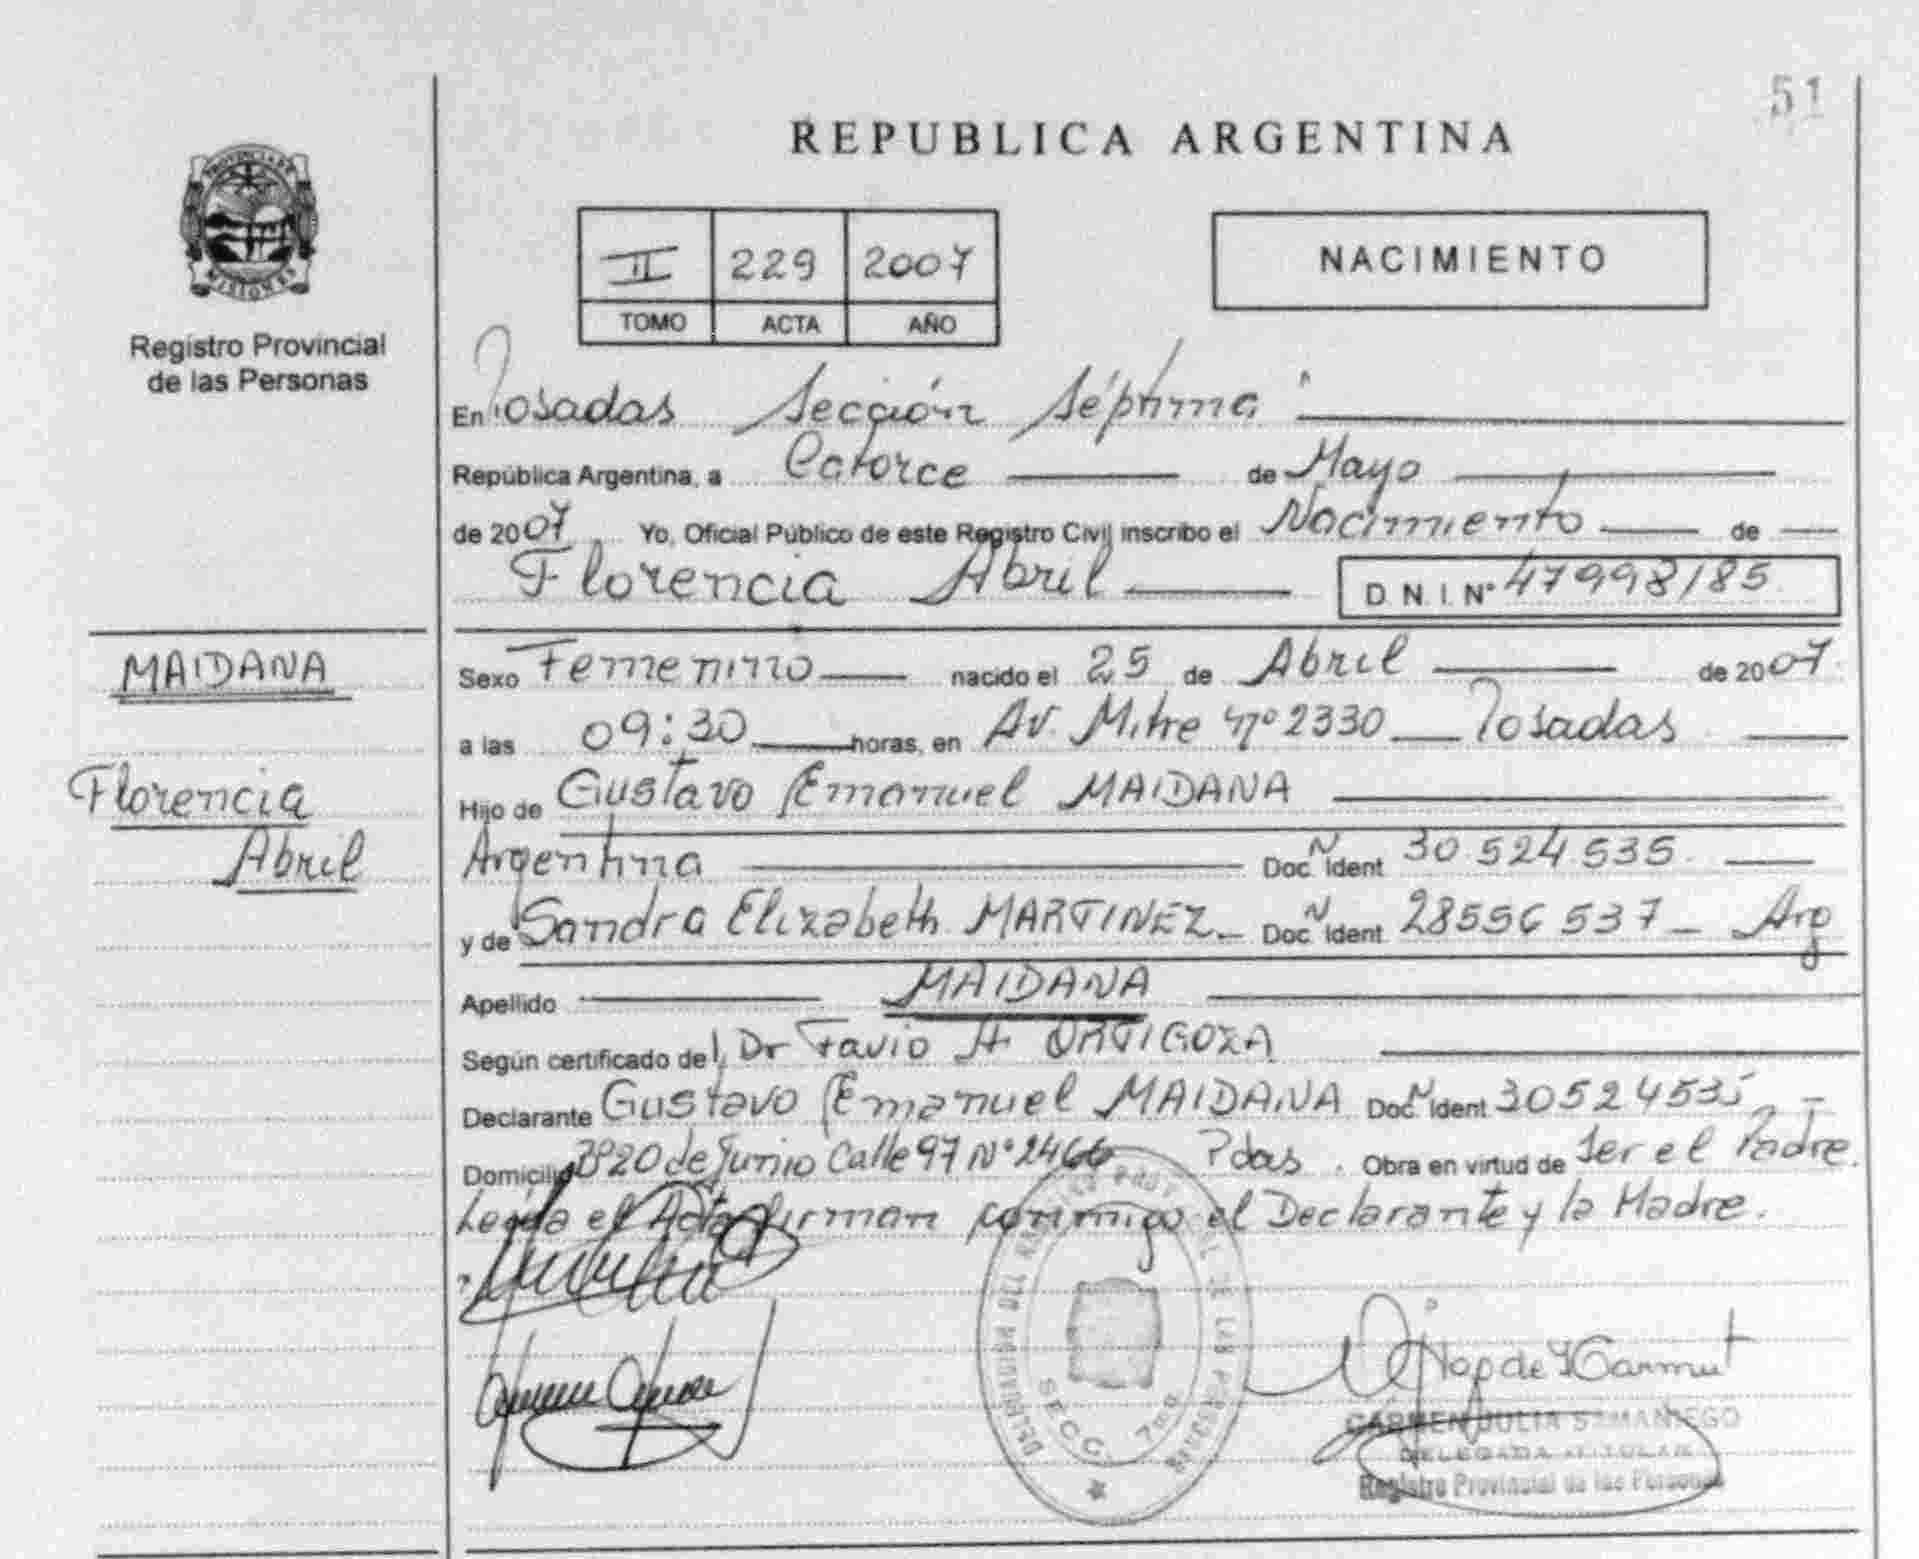 51
REPUBLICA ARGENTINA
PROVINCIA DE
MISIONES
Registro Provincial
de las Personas
II 229 2007
TOMO ACTA AÑO
NACIMIENTO
En Posadas Sección Séptima
República Argentina, a Catorce de Mayo
de 2007 Yo, Oficial Público de este Registro Civil inscribo el Nacimiento de
Florencia Abril D.N.I. Nº 47998185
MAIDANA
Florencia
Abril
Sexo Femenino nacido el 25 de Abril de 2007
a las 09:30 horas, en Av. Mitre nº 2330 Posadas
Hijo de Gustavo Emanuel MAIDANA
Argentina Doc. N Ident 30 524 535
y de Sandra Elizabeth MARTINEZ Doc. N Ident 28556 537 Arg
Apellido MAIDANA
Según certificado del Dr Favio A. ORTIGOZA
Declarante Gustavo Emanuel MAIDANA Doc. N Ident 30524535
Domicilio Bº 20 de Junio Calle 97 Nº 2466 Pdas. Obra en virtud de Ser el Padre.
Leída el Acta firman conmigo el Declarante y la Madre.
SECC. 7ma
CARMEN JULIA SAMANIEGO
DELEGADA TITULAR
Registro Provincial de las Personas